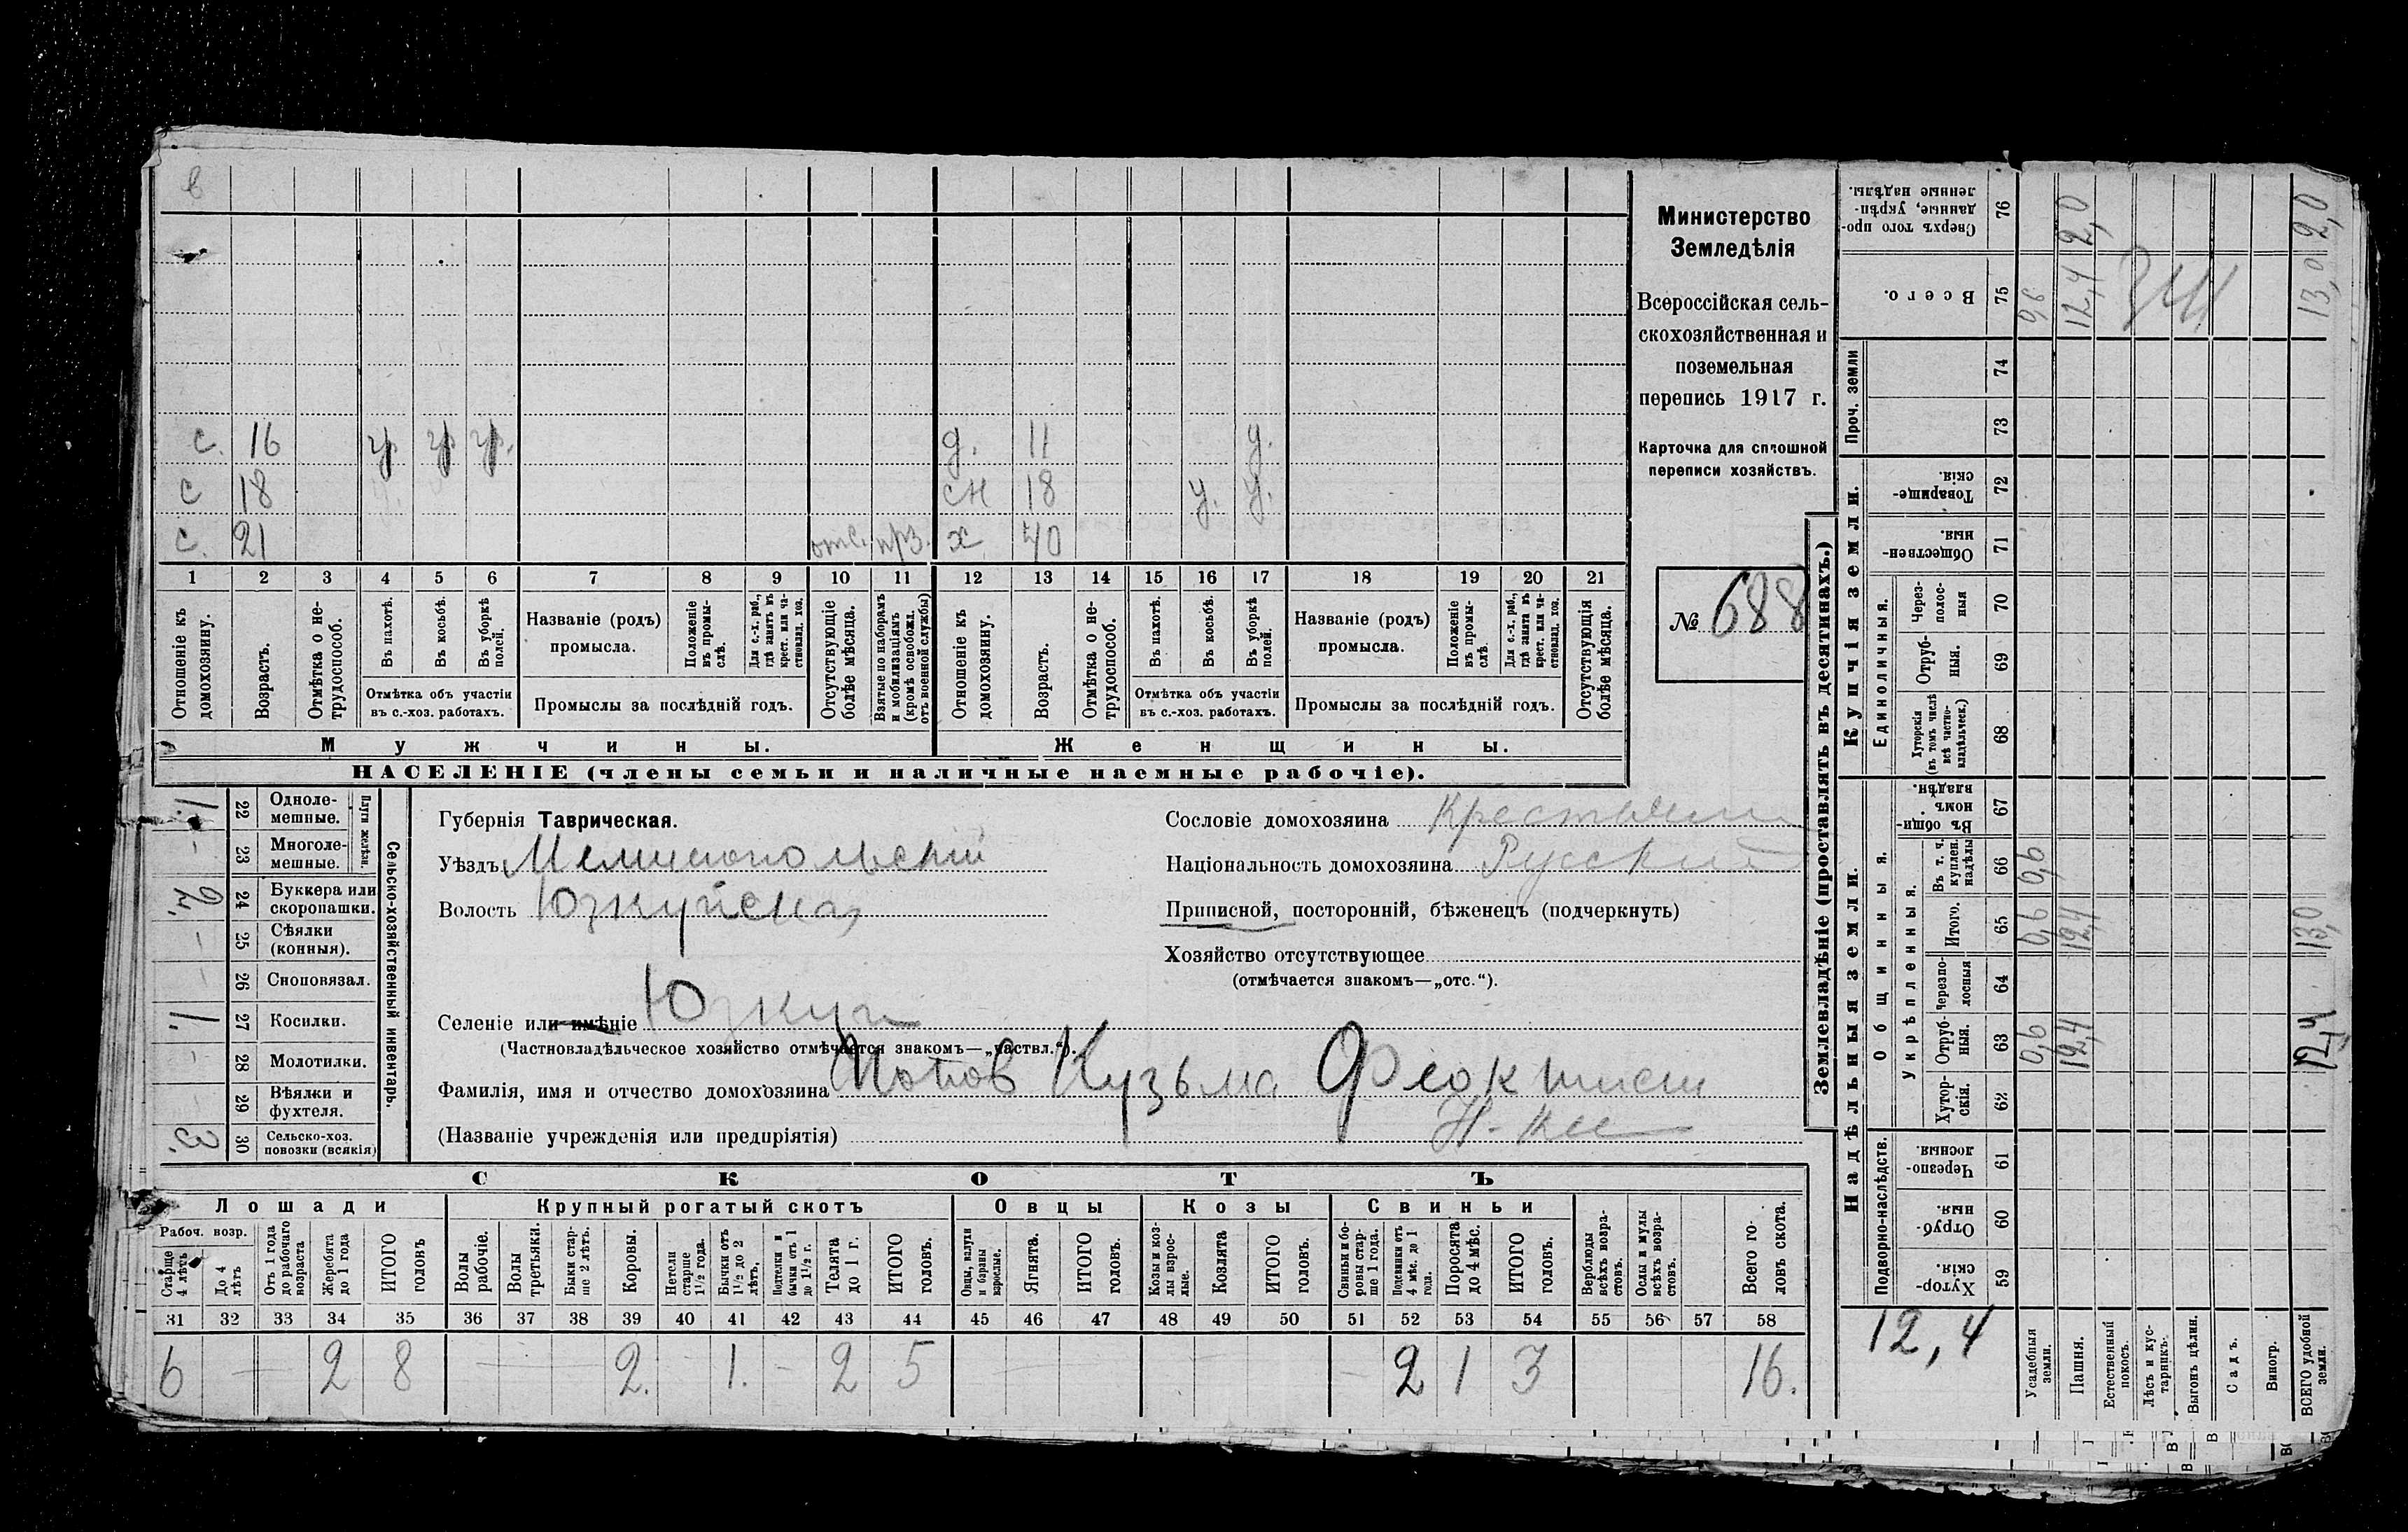 в
Министерство
Земледѣлія
Всероссійская сель-
скохозяйственная и
поземельная
перепись 1917 г.
Карточка для сплошной
переписи хозяйствъ.
№ 688
с. 16 у у у. д. 11 у.
с 18 сн 18 у. у.
с. 21 отс. прз. х 40
1 2 3 4 5 6 7 8 9 10 11 12 13 14 15 16 17 18 19 20 21
Отношеніе къ домохозяину.
Возрастъ.
Отмѣтка о не-трудоспособ.
Въ пахотѣ.
Въ косьбѣ.
Въ уборкѣ полей.
Отмѣтка объ участіи
въ с.-хоз. работахъ.
Названіе (родъ)
промысла.
Положеніе въ промы-слѣ.
Для с.-х. раб., гдѣ занятъ въ крест. или ча-стновлад. хоз.
Промыслы за послѣдній годъ.
Отсутствующіе болѣе мѣсяца.
Взятые по наборамъ и мобилизаціямъ (кромѣ освобожд. отъ военной службы)
Отношеніе къ домохозяину.
Возрастъ.
Отмѣтка о не-трудоспособ.
Въ пахотѣ.
Въ косьбѣ.
Въ уборкѣ полей.
Отмѣтка объ участіи
въ с.-хоз. работахъ.
Названіе (родъ)
промысла.
Положеніе въ промы-слѣ.
Для с.-х. раб., гдѣ занята въ крест. или ча-стновлад. хоз.
Промыслы за послѣдній годъ.
Отсутствующія болѣе мѣсяца.
Мужчины.
Женщины.
НАСЕЛЕНІЕ (члены семьи и наличные наемные рабочіе).
Сельско-хозяйственный инвентарь.
Плуги желѣзн.
Одноле-мешные. 22 1.
Многоле-мешные. 23 -
Буккера или скоропашки. 24 2.
Сѣялки (конныя). 25 -
Сноповязал. 26 -
Косилки. 27 1.
Молотилки. 28 -
Вѣялки и фухтеля. 29 -
Сельско-хоз. повозки (всякія) 30 3.
Губернія Таврическая.
Уѣздъ Мелитопольскій
Волость Юзкуйская
Селеніе или имѣніе Юзкуи
(Частновладѣльческое хозяйство отмѣчается знакомъ—„частвл.“).
Фамилія, имя и отчество домохозяина Попов Кузьма Феоктист
(Названіе учрежденія или предпріятія)
Сословіе домохозяина Крестьянин
Національность домохозяина Русский
Приписной, посторонній, бѣженецъ (подчеркнуть)
Хозяйство отсутствующее
(отмѣчается знакомъ—„отс.“).
СКОТЪ
Лошади
Крупный рогатый скотъ
Овцы
Козы
Свиньи
Рабоч. возр.
Старше 4 лѣтъ
До 4 лѣтъ
Отъ 1 года до рабочаго возраста
Жеребята до 1 года
ИТОГО головъ
Волы рабочіе.
Волы третьяки.
Быки стар-ше 2 лѣтъ.
Коровы.
Нетели старше 1½ года.
Бычки отъ 1½ до 2 лѣтъ.
Подтелки и бычки отъ 1 до 1½ г.
Телята до 1 г.
ИТОГО головъ.
Овцы, валухи и бараны взрослые.
Ягнята.
ИТОГО головъ.
Козы и коз-лы взрос-лые.
Козлята
ИТОГО головъ.
Свиньи и бо-ровы стар-ше 1 года.
Подсвинки отъ 4 мѣс. до 1 года.
Поросята до 4 мѣс.
ИТОГО головъ.
Верблюды всѣхъ возра-стовъ.
Ослы и мулы всѣхъ возра-стовъ.
Всего го-ловъ скота.
31 32 33 34 35 36 37 38 39 40 41 42 43 44 45 46 47 48 49 50 51 52 53 54 55 56 57 58
6 - 2 8 - 2. - 1. - 2 5 - - 2 1 3 16.
Землевладѣніе (проставлять въ десятинахъ.)
Надѣльныя земли.
Купчія земли.
Проч. земли
Подворно-наслѣдств.
Общинныя.
Укрѣпленныя.
Единоличныя.
Сверхъ того про-данные, укрѣп-ленные надѣлы. 76 2,0 2,0
Всего. 75 0,6 12,4 13,0
74
73
Товарище-скія. 72
Обществен-ныя. 71
Через-полос-ныя 70
Отруб-ныя. 69
Хуторскія (въ томъ числѣ всѣ частно-владѣльческ.) 68
Въ общин-номъ владѣн. 67
Въ т. ч. куплен. надѣлы 66 0,6
Итого. 65 0,6 12,4 13,0
Черезпо-лосныя 64
Отруб-ныя. 63 0,6 12,4 12,4
Хутор-скія. 62
Черезпо-лосныя. 61
Отруб-ныя. 60
Хутор-скія. 59
12,4
Усадебныя земли.
Пашня.
Естественный покосъ.
Лѣсъ и кус-тарникъ.
Выгонъ цѣлин.
Садъ.
Виногр.
ВСЕГО удобной земли.